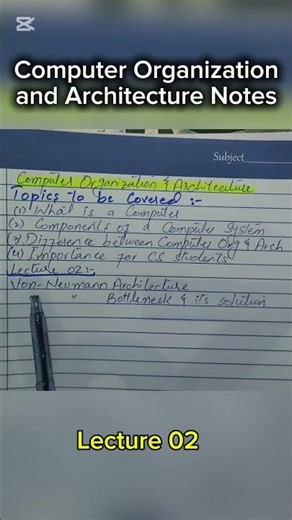 Computer Organization
and Architecture Notes
Subject
Computer Organization & Architecture
Topics to be Covered :-
(1) What is a Computer
(2) Components of a Computer System
(3) Difference between Computer Org & Arch
(4) Importance for CS Students
Lecture 02:-
Von-Neumann Architecture
" Bottleneck & its solution
Lecture 02